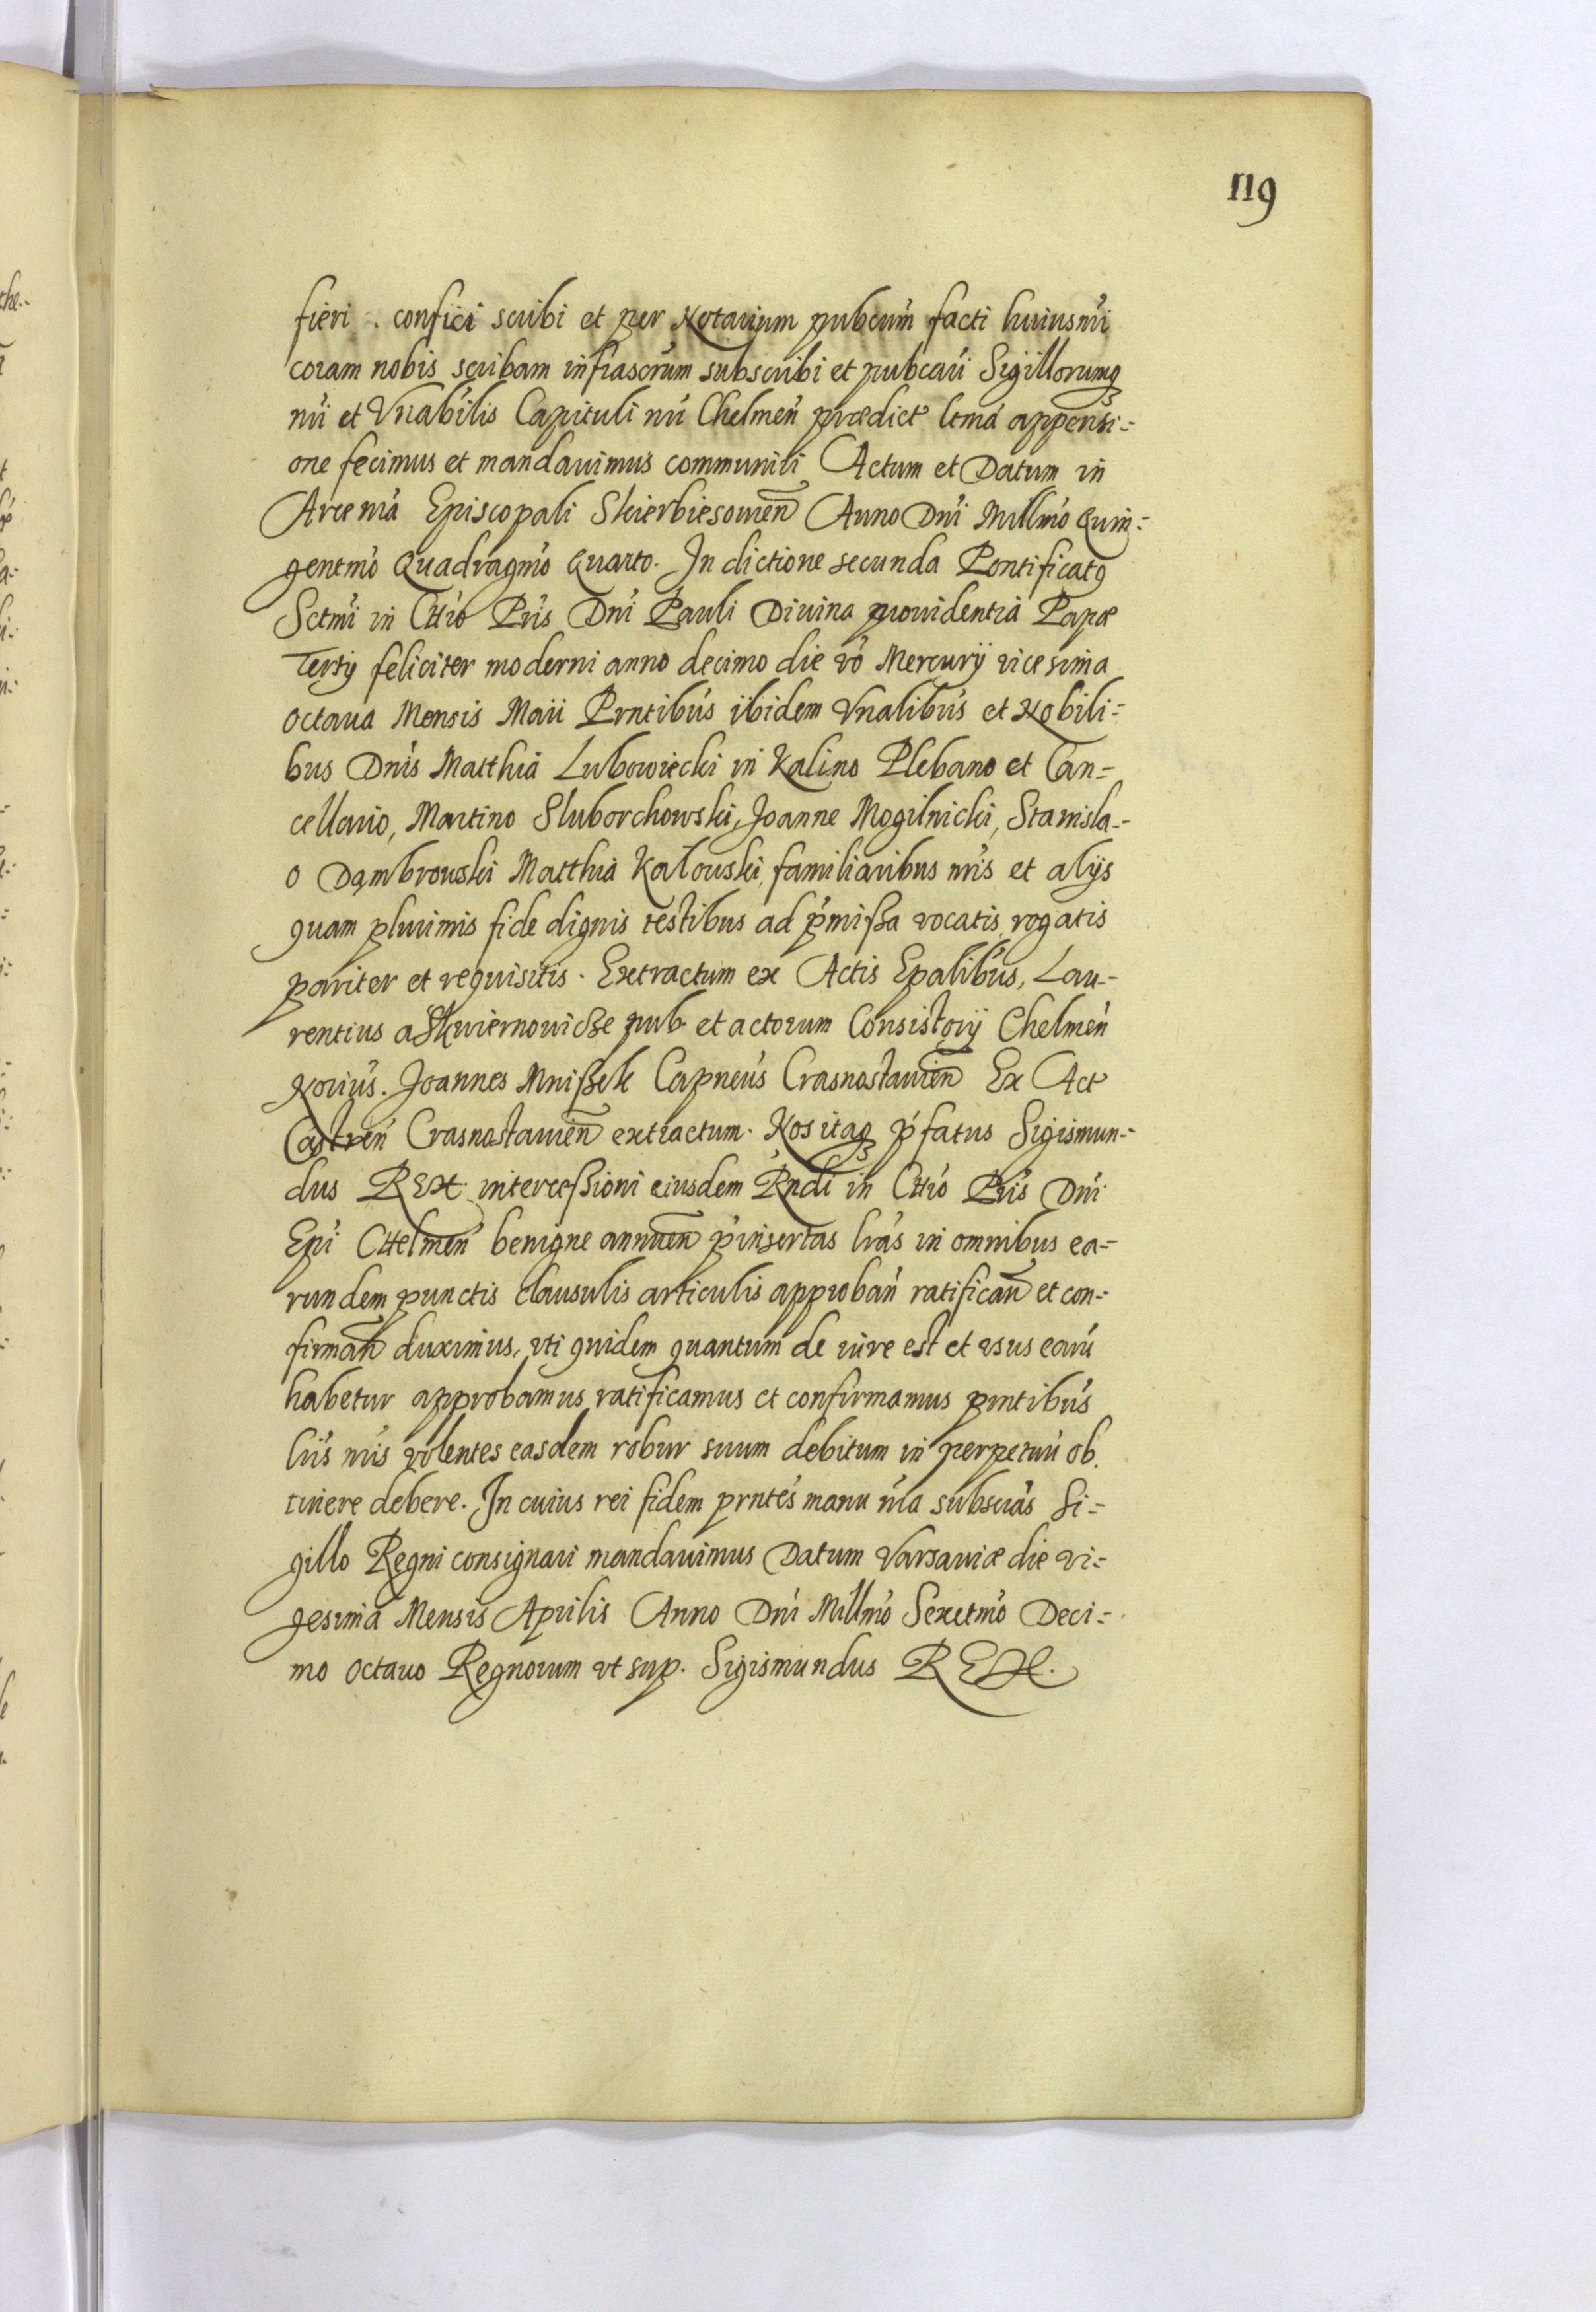 119
fieri . confici scribi et per Notarium pubcum̃ facti huiusmi
coram nobis scribam infrascrũm subscribi et pubcari Sigillorumq
nri et Vnabilis Capituli nri Chelmeñ prædict ltma appensi-
one fecimus et mandauimus communiri Actum et Datum in
Arce nrã Episcopali Skierbiesouieñ Anno Dni Millmo Quin-
gentmo Quadragmo Quarto. In dictione secunda Pontificatq
Sctmi in Chro Pris Dni Pauli Diuina prouidentia Papæ
Tertij feliciter moderni anno decimo die vo Mercurij vicesima
octaua Mensis Maii Prntibus ibidem Vnalibus et Nobili-
bus Dnis Matthia Lubowiecki in Kalino Plebano et Can-
cellario, Martino Sluborchowski, Joanne Mogilnicki, Stanisla-
o Dąmbrowski Matthia Kalouski, familiaribus nris et alijs
quam plurimis fide dignis testibus ad pmißa vocatis, rogatis
pariter et requisitis. Extractum ex Actis Epalibus, Lau-
rentius a Skwiernouicze pub et actorum Consistorij Chelmeñ
Norius. Joannes Mnißek Capneus Crasnostauieñ Ex Act
Castreñ Crasnostauieñ extractum. Nos itaq pfatus Sigismun-
dus REX intercessioni eiusdem Rndi in Chro Pris Dni
Epi CHelmeñ benigne annueñ pinsertas lras in omnibus ea-
rundem punctis clausulis articulis approbañ ratificañ et con-
firmañ duximus, vti quidem quantum de iure est et vsus earũ
habetur approbamus ratificamus et confirmamus pntibus
lris nris volentes easdem robur suum debitum in perpetuũ ob
tinere debere. In cuius rei fidem prntes manu nra subscras Si-
gillo Regni consignari mandauimus Datum Varsauiæ die vi-
gesima Mensis Aprilis Anno Dni Millmo Sexctmo Deci-
mo Octauo Regnorum vt sup. Sigismundus REX.